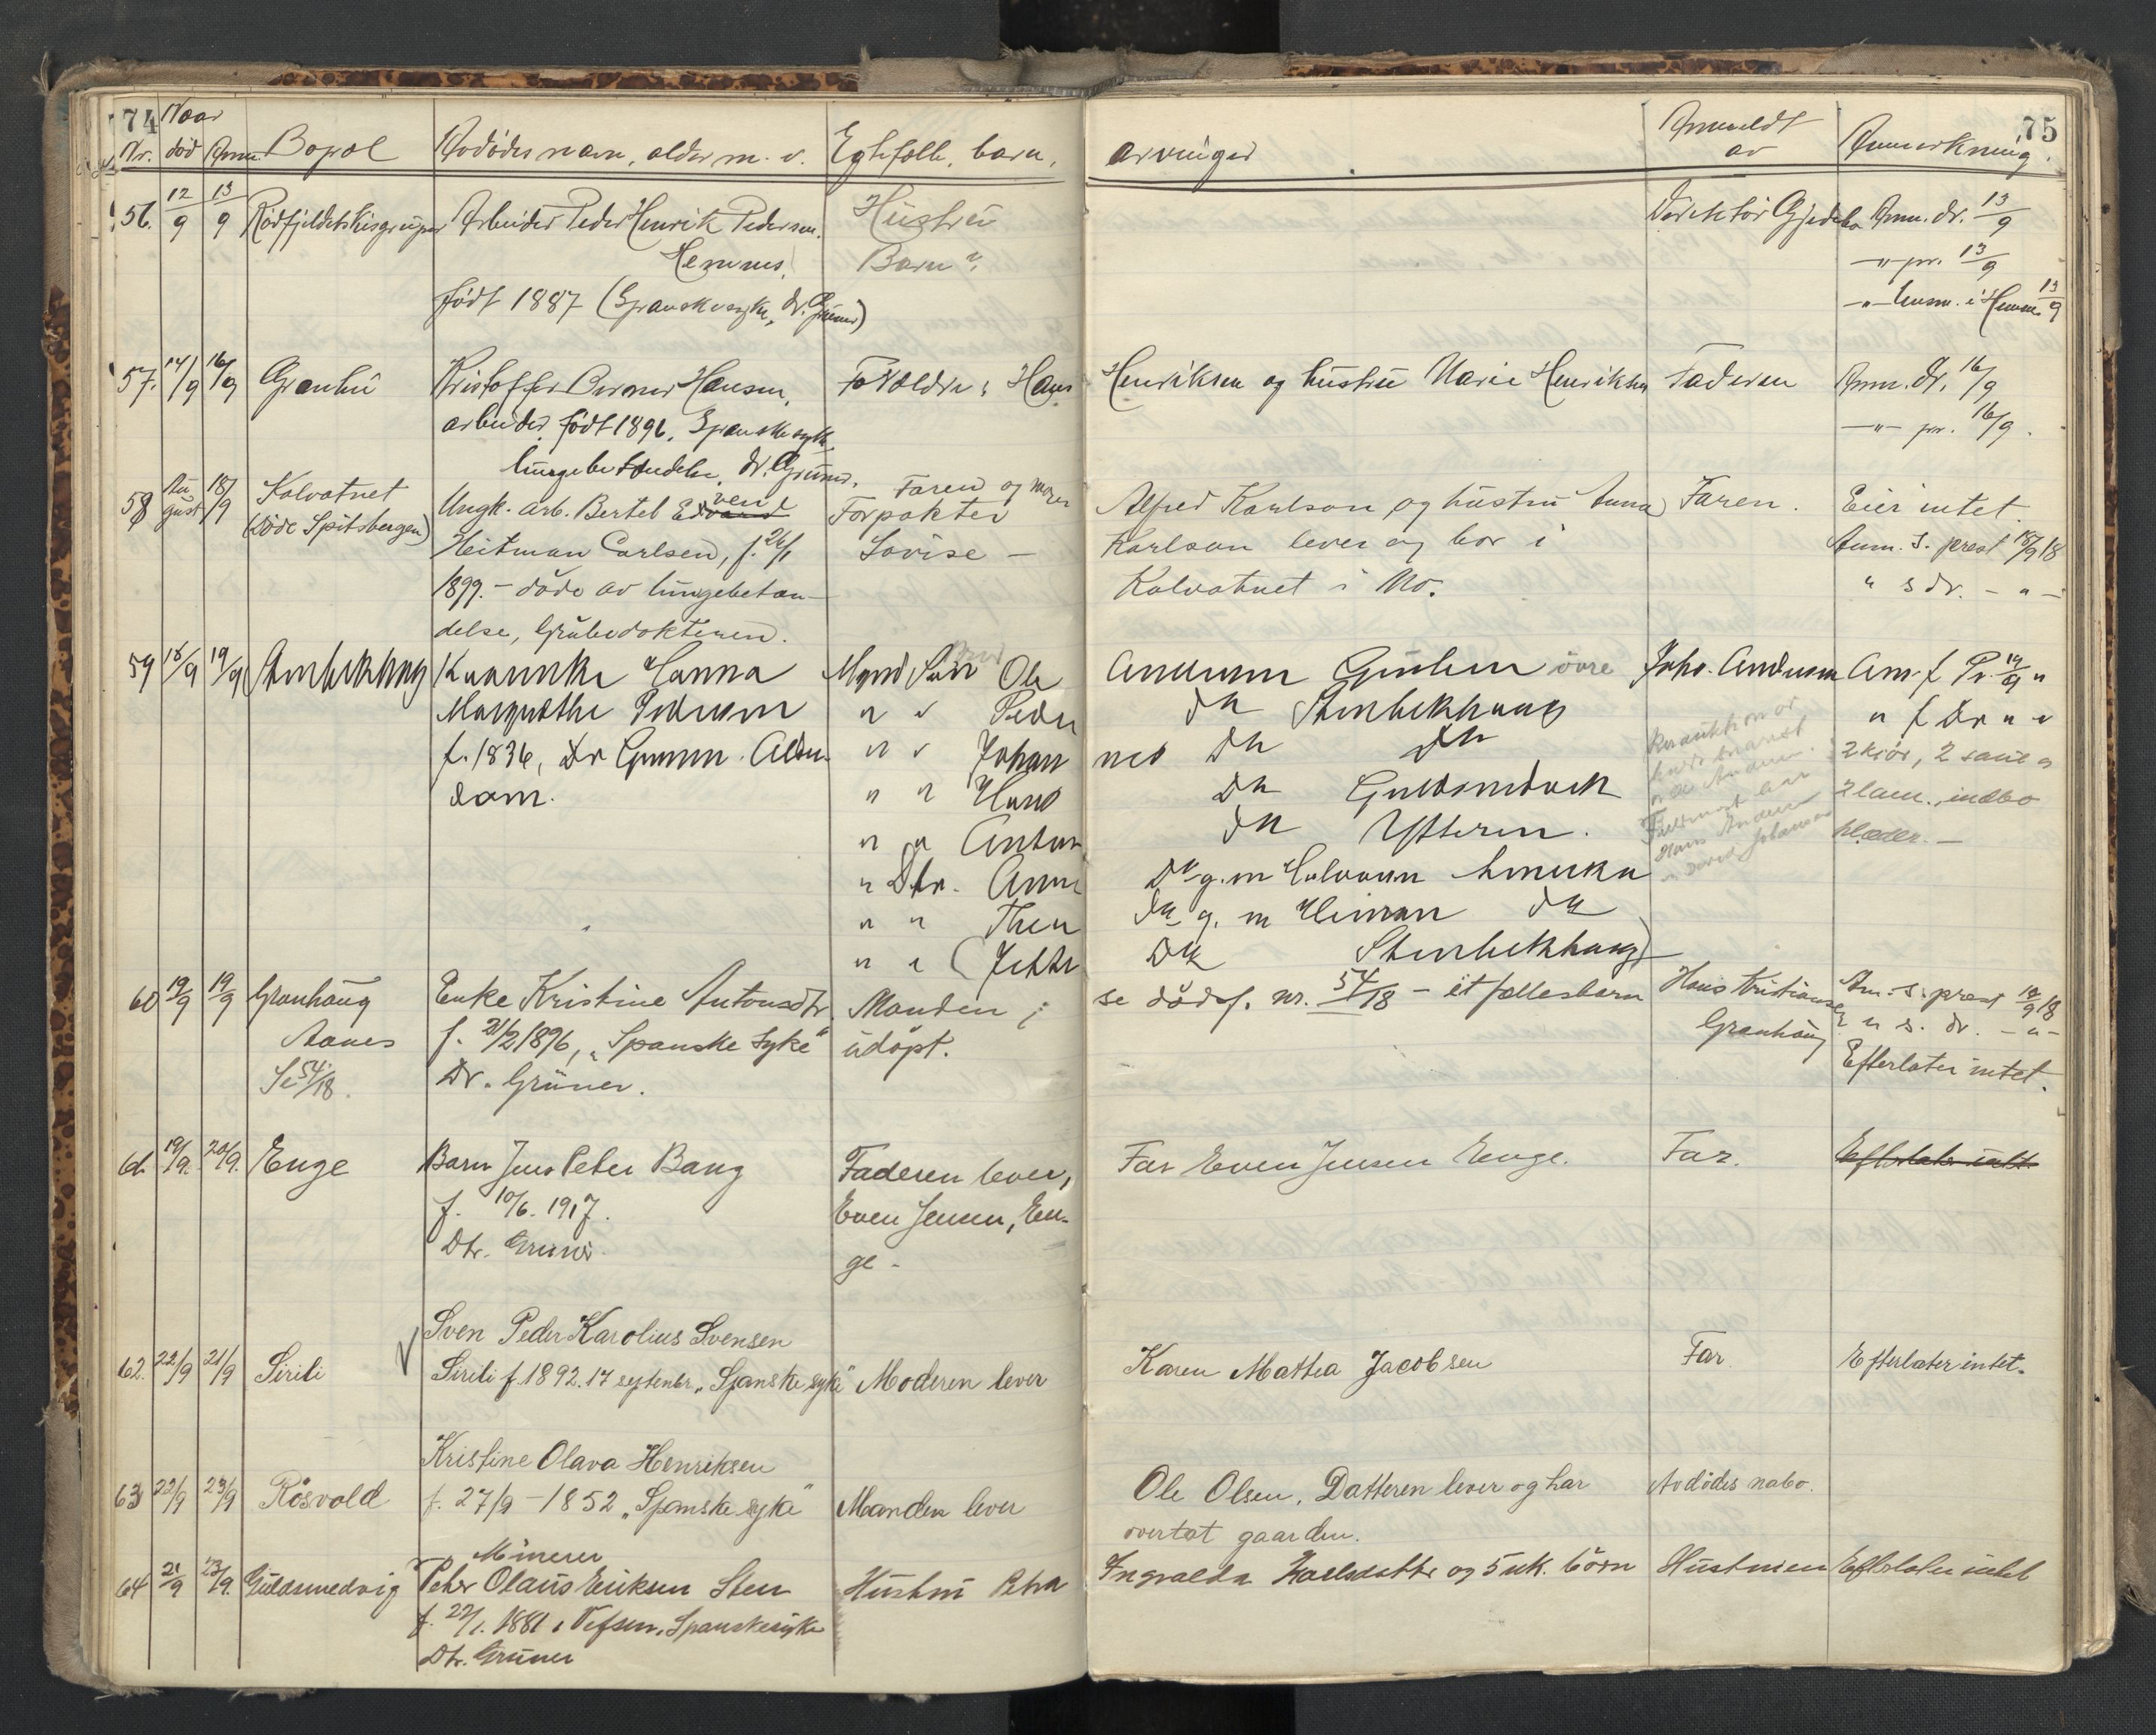 74 Naar
Nr. død Anm. Bopæl Avdødes navn, alder m. v. Egtefolk, barn,
56. 12/9 13/9 Rödfjeldetskisgruper Arbeider Peder Henrik Pedersen. Hustru
Hemnes. Barn?
født 1887 (Spanskesyke, dr. Grüner)
57. 14/9 16/9 Grønli Kristoffer Hansen, Forældre: Hans
arbeider født 1896. Spanskesyke
lungebetændelse, dr. Grüner.
58 August 18/9 Kalvatnet Ungk. arb. Bertel Edvard vend Faren og moren
(Döde Spitsbergen) Forpakter
Heitman Carlsen, f. 26/1 Lovise —
1899. – døde av lungebetæn-
delse, Grubedokteren.
59 18/9 19/9 Stenbekhaug Hanna Mynd Søn Ole
Margrethe Pedersen " " Peder
f. 1836, Dr Grüner. Alder- " " Johan
dom. " " Hans
" " Anton
" Dtr. Anne
" " Thea
" " (Jette
60 19/9 19/9 Granhaug Enke Kristine Antonsdtr. Manden;
Aanes f. 21/2 1896, "Spanske Syke" udøpt.
Se 54/18. Dr. Grüner.
61. 19/9. 20/9. Enge Barn Jens Peter Bang Faderen lever,
f. 10/6. 1917. Even Jensen, En-
Dtr. Grüner ge -
Sven Peder Karolius Svensen
62. 22/9 21/9 Sirili Sirili f. 1892. 17 septembr. "Spanske syke" Moderen lever
Kristine Olava Henriksen
63 22/9 23/9 Røsvold f. 27/9 – 1852 "Spanske syke" Manden lever
Minerer
64 21/9 23/9. Guldsmedvig Peter Olaus Eriksen Sten Hustru Petra
f. 22/1. 1881 i Vefsen. Spanskesyke
Dtr. Grüner
75
arvinger Anmeldt av Anmerkning.
Direktör Gjedebo Anm. dr. 13/9
—"— pr. 13/9
—"— lensm. i Hemn. 13/9
Henriksen og hustru Marie Henriksen Faderen Anm. dr. 16/9
—"— pr. 16/9.
Alfred Karlson og hustru Anna Faren. Eier intet.
Karlson lever og bor i Anm. s. prest 18/9 18
Kalvatnet i Mo. " s dr. - " -
Andersen Grüben övre Johs. Andersen Anm. f Pr. 19/9 "
da Stenbekhaug " f Dr " "
da da 2 kjør, 2 saue o
da Guldsmedvik 2 lam., indbo
da Ytteren. klæder. —
da g. m Halvorsen Amerika
da g. m da
da Stenbekhaug)
se dødsf. nr. 54/18 – et fællesbarn Hans Kristiansen Anm. s. prest 19/9 18
Granhaug " s. dr. - " -
Efterlater intet.
Far Even Jensen Enge. Far. Efterlater intet.
Karen Mathea Jacobsen Far Efterlater intet.
Ole Olsen. Datteren lever og har Avdødes nabo.
overtat gaarden.
Ingvalda Karlsdatter og 5 uk. børn Hustruen Efterlater intet